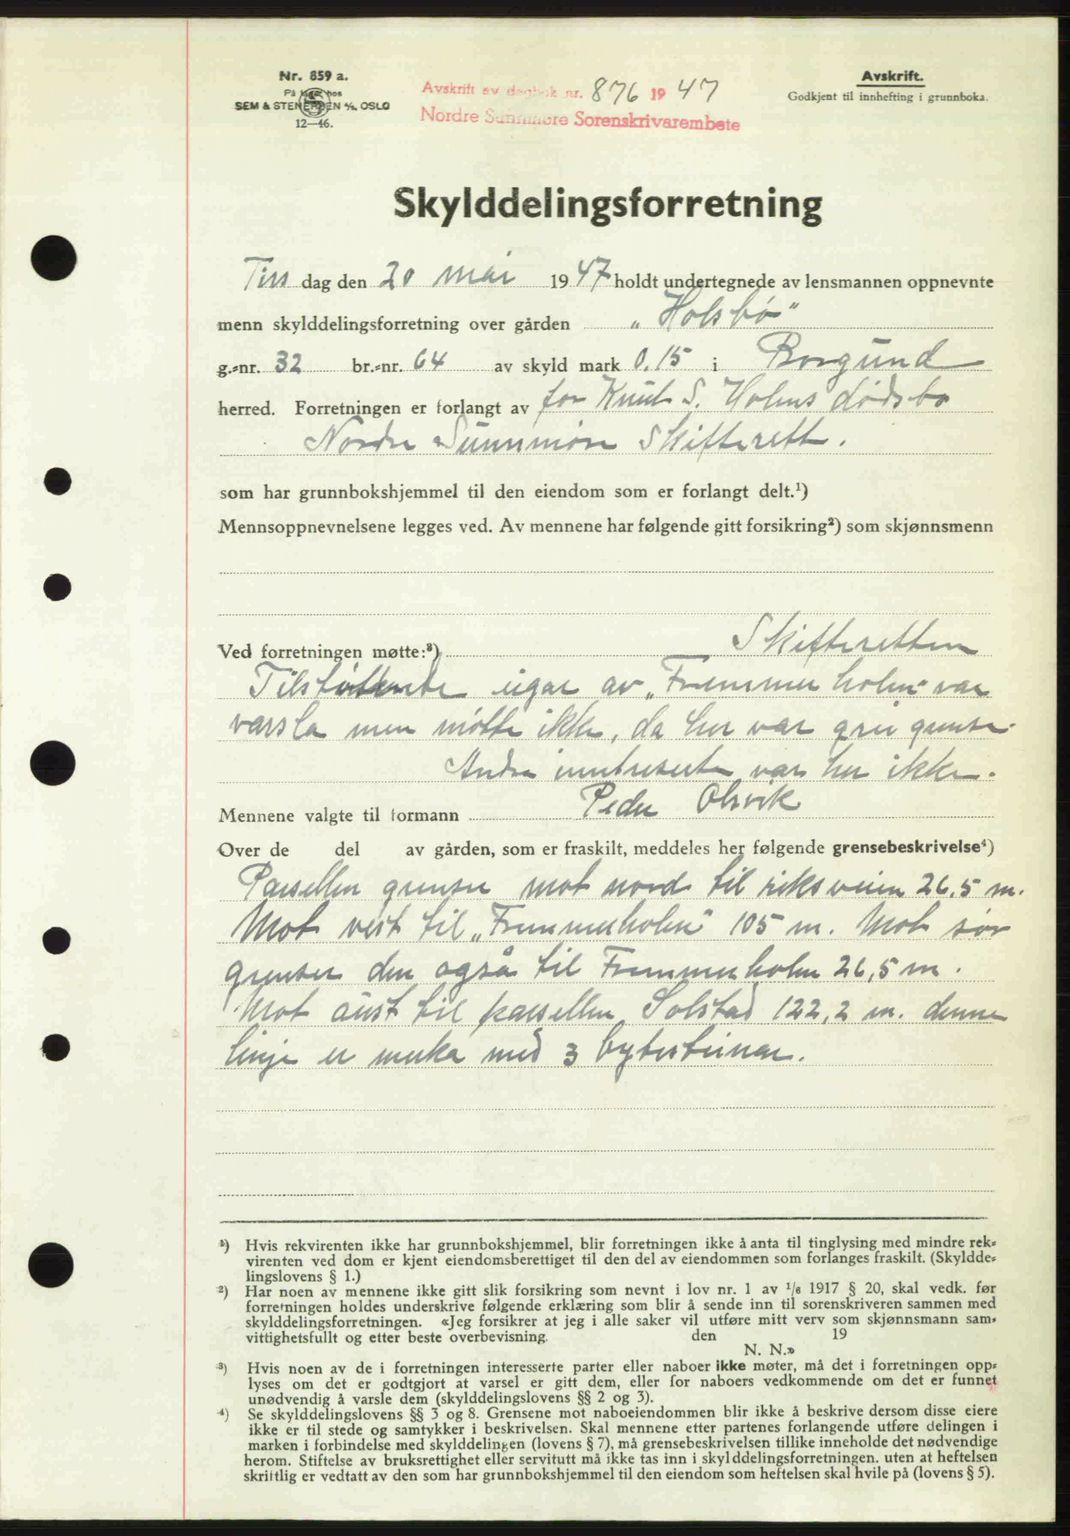 Nr. 859 a.
På lager hos
SEM & STENERSEN A/S, OSLO
12—46.
Avskrift av dagbok nr. 876 1947
Nordre Sunnmøre Sorenskrivarembete
Avskrift.
Godkjent til innhefting i grunnboka.
Skylddelingsforretning
Tirs dag den 20 mai 1947 holdt undertegnede av lensmannen oppnevnte
menn skylddelingsforretning over gården „Holsbö"
g.-nr. 32 br.-nr. 64 av skyld mark 0.15 i Borgund
herred. Forretningen er forlangt av for Knut S. Holms dödsbo
Nordre Sunnmöre Skifterett.
som har grunnbokshjemmel til den eiendom som er forlangt delt.¹)
Mennsoppnevnelsene legges ved. Av mennene har følgende gitt forsikring²) som skjønnsmenn
Ved forretningen møtte:³) Skifteretten
Tilstötende eigar av „Fremmerholm" var
varsla men mötte ikke, da her var grei grense.
Andre inntreserte var her ikke.
Mennene valgte til formann Peder Olsvik
Over de del av gården, som er fraskilt, meddeles her følgende grensebeskrivelse⁴)
Parsellen grenser mot nord til riksveien 26,5 m.
Mot vest til „Fremmerholm" 105 m. Mot sör
grenser den også til Fremmerholm 26,5 m.
Mot aust til parsellen Solstad 122,2 m. denne
linje er merka med 3 bytesteinar.
¹) Hvis rekvirenten ikke har grunnbokshjemmel, blir forretningen ikke å anta til tinglysing med mindre rek-
virenten ved dom er kjent eiendomsberettiget til den del av eiendommen som forlanges fraskilt. (Skyldde-
lingslovens § 1.)
²) Har noen av mennene ikke gitt slik forsikring som nevnt i lov nr. 1 av 1/6 1917 § 20, skal vedk. før
forretningen holdes underskrive følgende erklæring som blir å sende inn til sorenskriveren sammen med
skylddelingsforretningen. «Jeg forsikrer at jeg i alle saker vil utføre mitt verv som skjønnsmann sam-
vittighetsfullt og etter beste overbevisning. den 19
N. N.»
³) Hvis noen av de i forretningen interesserte parter eller naboer ikke møter, må det i forretningen opp-
lyses om det er godtgjort at varsel er gitt dem, eller for naboers vedkommende om det er funnet
unødvendig å varsle dem (skylddelingslovens §§ 2 og 3).
⁴) Se skylddelingslovens §§ 3 og 8. Grensene mot naboeiendommen blir ikke å beskrive dersom disse eiere
ikke er til stede og samtykker i beskrivelsen. Skal mennene etter partenes forlangende utføre delingen i
marken i forbindelse med skylddelingen (lovens § 7), må grensebeskrivelsen tillike inneholde det nødvendige
herom. Stiftelse av bruksrettighet eller servitutt må ikke tas inn i skylddelingsforretningen. uten at heftelsen
skriftlig er vedtatt av den som har grunnbokshjemmel til den eiendom som heftelsen skal hvile på (lovens § 5).